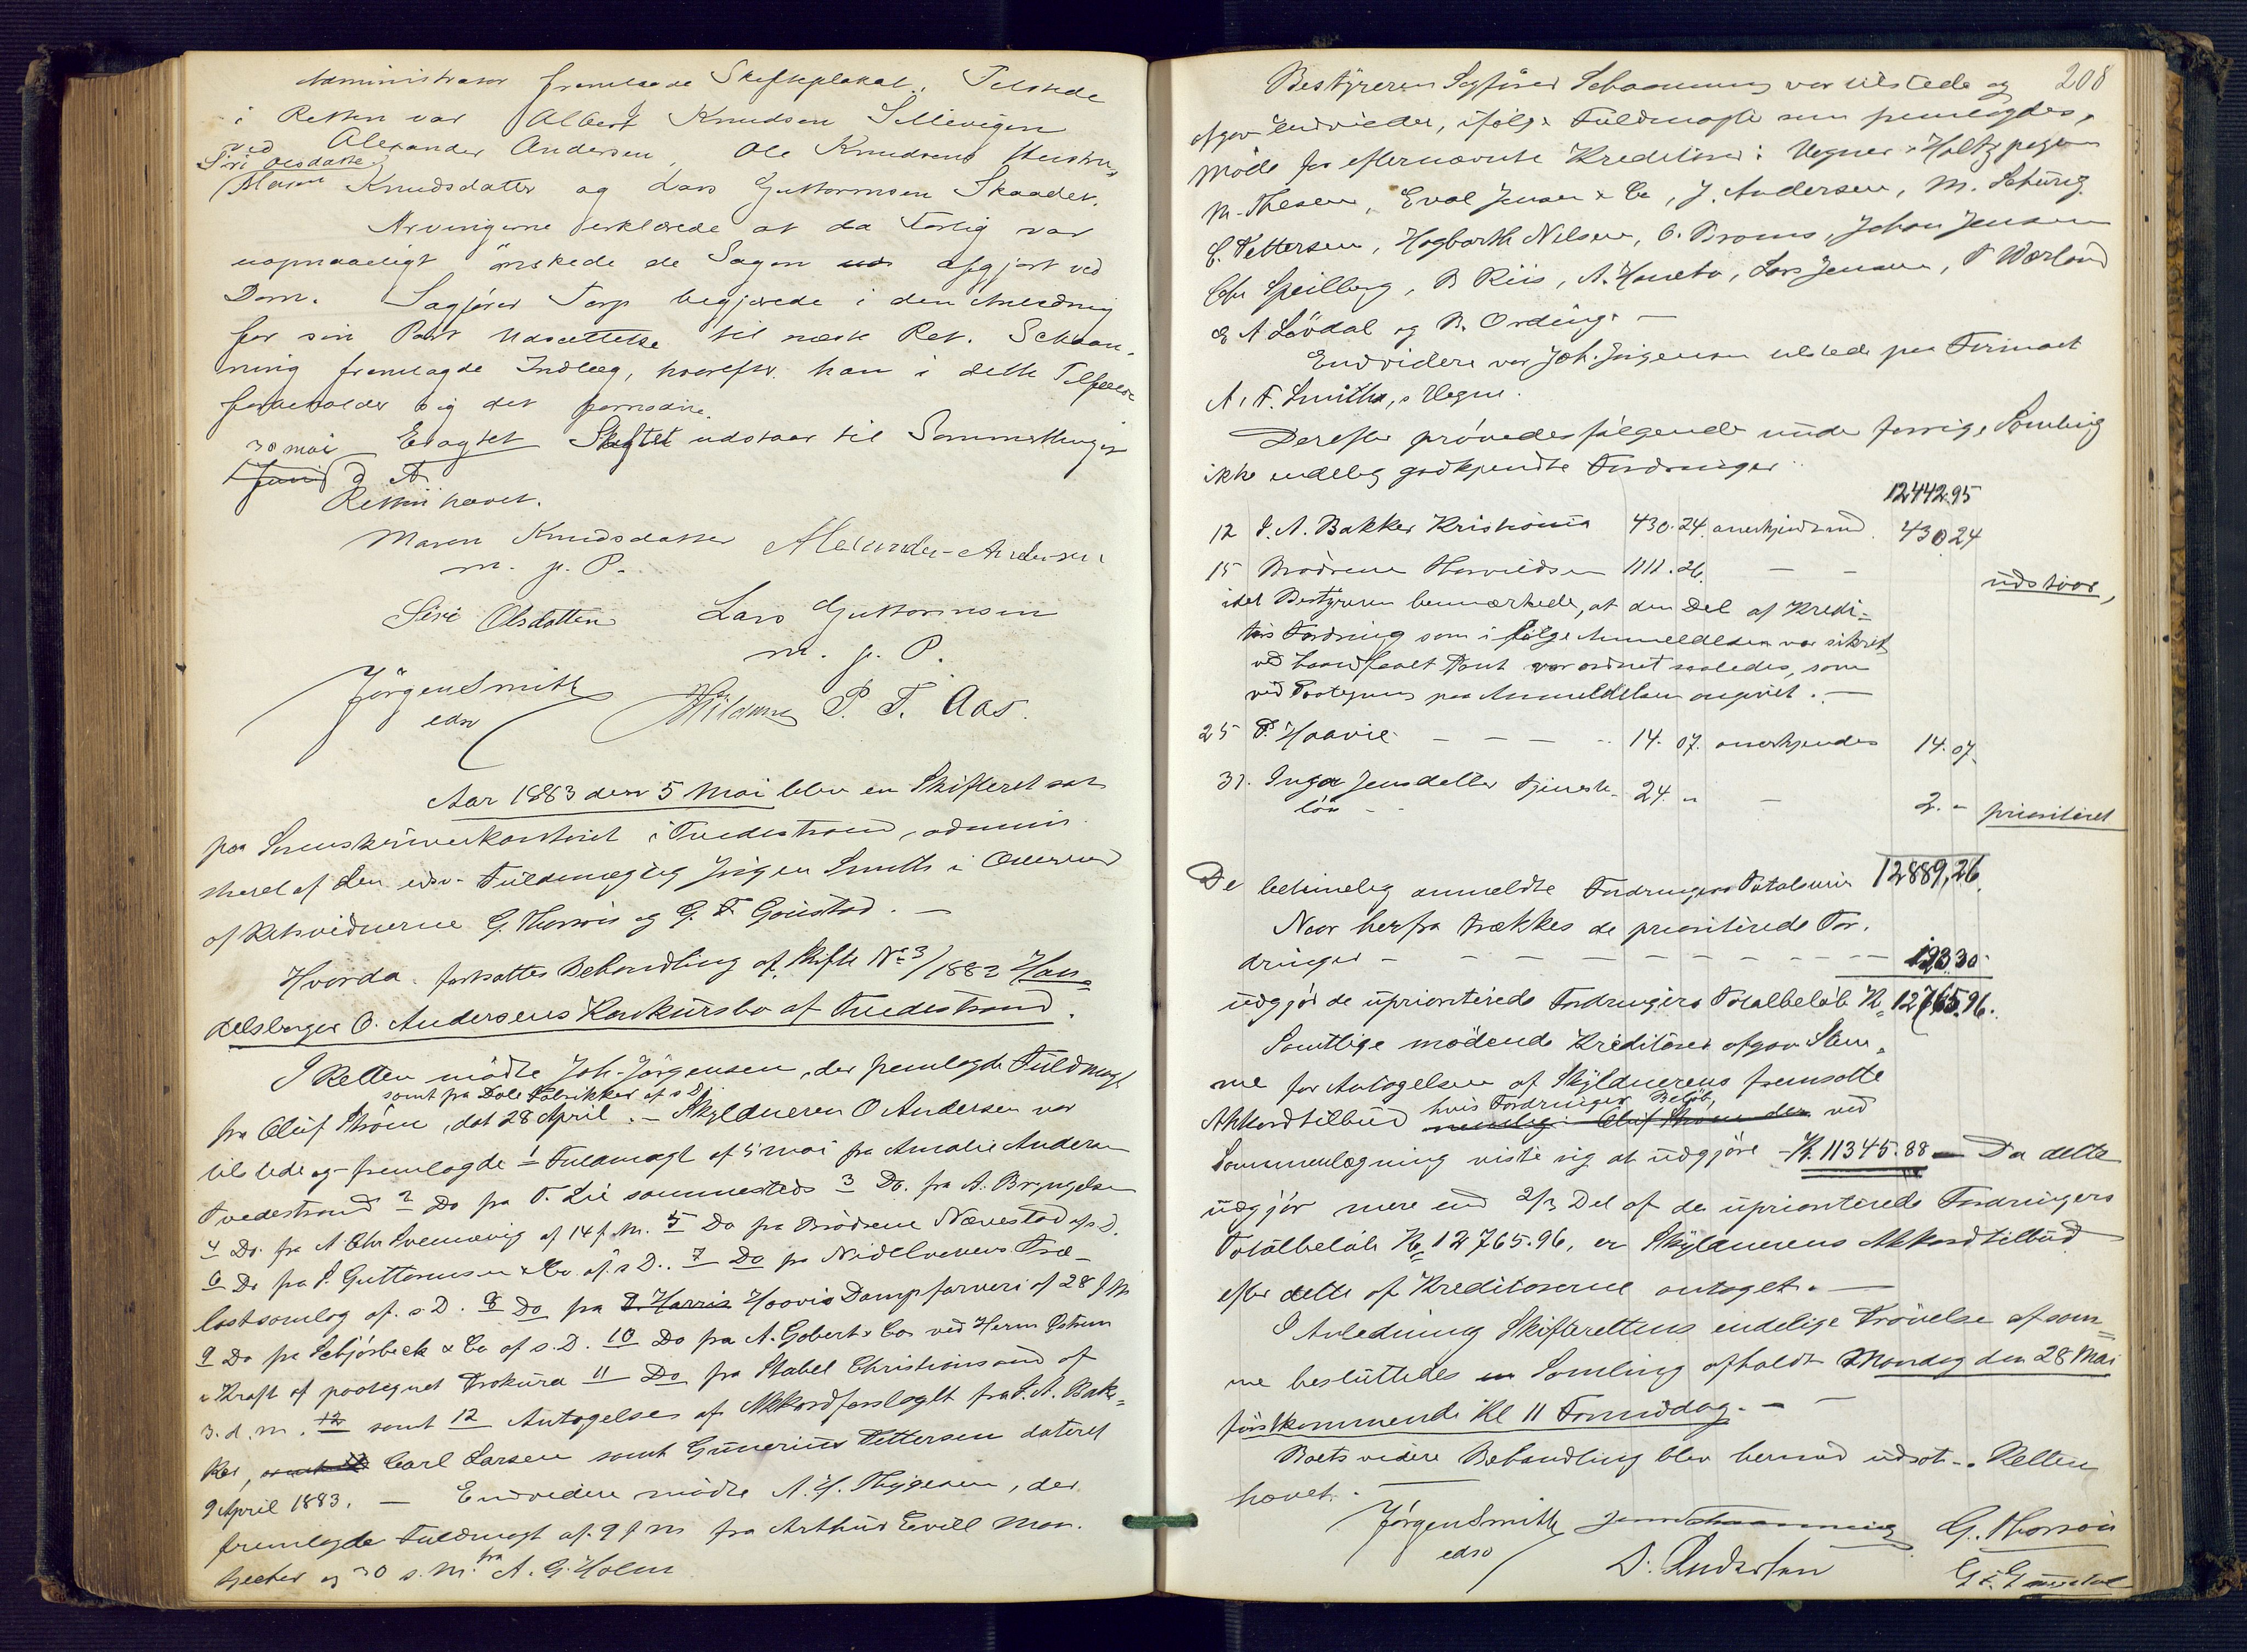 Administrator fremlagde Skifteplakat. Tilstede
i Retten var Albert Knudsen Sellevigen
ved Alexander Andersen, Ole Knudsens Hustru
Siri Olsdatter
Maren Knudsdatter og Lars Guttormsen Skaadet.
Arvingerne erklærede at da Forlig var
uopnaaeligt ønskede de Sagen afgjort ved
Dom. Sagfører Torp begjærede i den Anledning
for sin Part Udsættelse til næste Ret. Schaan-
ning fremlagde Indlæg, hvorefter han i dette Tilfælde
forbeholder sig det fornødne.
Eragtet Skiftet udstaar til Sammetinget
30 mai
Juni d. A.
Retten hævet.
Maren Knudsdatter Alexander Andersen
m. p. P.
Siri Olsdatter Lars Guttormsen
m. p. P.
Jörgen Smith P. T. Aas.
edsv
Aar 1883 den 5 Mai blev en Skifteret sat
paa Sorenskriverkontoret i Tvedestrand, admini-
streret af den edsv. Fuldmægtig Jørgen Smith i Overvær
af Retsvidnerne G. Thorsøn og G. F. Goustad. —
Hvorda fortsattes Behandling af Skifte No 3/1882 Han-
delsborger O. Andersens Konkursbo af Tvedestrand.
I Retten mødte Joh. Jørgensen, der fremlagde Fuldmagt
samt fra Dale Fabrikker af s D,
fra Oluf Strøm, dat 28 April. — Skyldneren O Andersen var
tilstede og fremlagde 1 Fuldmagt af 5 mai fra Amalie Andersen
Tvedestrand 2 Do fra T. Lie sammesteds 3 Do. fra A. Bryngelsen
4 Do. fra A. Chr Svennevig af 14 f. M. 5 Do fra Brødrene Nævestad af s D.
6 Do fra S. Guttormsen & Co. af s D. 7 Do fra Nidelvens Træ-
lastsamlag af s. D. 8 Do fra T. Harris Haavis Dampfarveri af 28 f M
9 Do fra Schjørbeck & Co af s. D. 10 Do fra A. Gobert & Co ved Herm
i Kraft af paategnet Prokura 11 Do fra Stabel Christiansand af
3. d. M. 12 samt 12 Antagelser af Akkordforslaget fra J. A. Bak-
ker, Carl Larsen samt Gunerius Pettersen dateret
9 April 1883. — Endvidere mødte A. H. Thygesen, der
fremlagde Fuldmagt af 9 f M fra Arthur Evill Man-
chester og 30 s. M. fra A. G. Holm
208
Bestyreren Sagfører Schaanning var tilstede og
afgav Endvidere, ifølge Fuldmagter som fremlagdes,
Møde for efternævnte Kreditorer: Wegner
M. Thesen, Eval Jensen & Co, J. Andersen, M. Schürig
C. Pettersen, Hagbarth Nilsen, O. Broms, Johan Jensen
Chr Speilberg, B Riis, A. Haneto, Lars Jensen, T Værland
E A Løvdal og N. Ording. —
Endvidere var Joh. Jörgensen tilstede paa Firmaet
A. F. Smiths, s Vegne.
Derefter prøvedes følgende under forrige Samling
ikke endelig godkjendte Fordringer:
12442.95
12 J. A. Bakker Kristiania 430.24. anerkjendes med 430 24
15 Brødrene Haraldsen 1111.26. — — udstaar,
idet Bestyreren bemærkede, at den Del af Kredi-
tors Fordring som i følge Anmeldelsen var sikret
ved haandfaaet Pant var ordnet saaledes, som
ved Paategning paa Anmeldelsen angivet. —
25 P. Haavie — — — 14. 07. anerkjendes 14. 07.
31. Inga Jensdatter Tjeneste- 24. " — 2. " prioriteret
løn
De betimelig anmeldte Fordringers Totalsum 12889,26.
Naar herfra trækkes de prioriterede For-
dringer — — — — — — — 123.30
udgjør de uprioriterede Fordringers Totalbeløb Kr 12765.96.
Samtlige mødende Kreditorer afgav Stem-
me for Antagelsen af Skyldnerens fremsatte
Akkordtilbud hvis Fordringer Beløb, nemlig Oluf Strøm der ved
Sammenlægning viste sig at udgjøre Kr. 11345.88 — Da dette
udgjør mere end 2/3 Del af de uprioriterede Fordringers
Totalbeløb Kr 12765.96, er Skyldnerens Akkordtilbud
efter dette af Kreditorerne antaget. —
I Anledning Skifterettens endelige Prøvelse af sam-
me besluttedes en Samling afholdt Mandag den 28 Mai
førstkommende Kl 11 Formiddag. —
Boets videre Behandling blev hermed udsat. — Retten
hævet.
Jörgen Smith Jens Schaanning G. Thorsøn
edsv O. Andersen G F Goustad